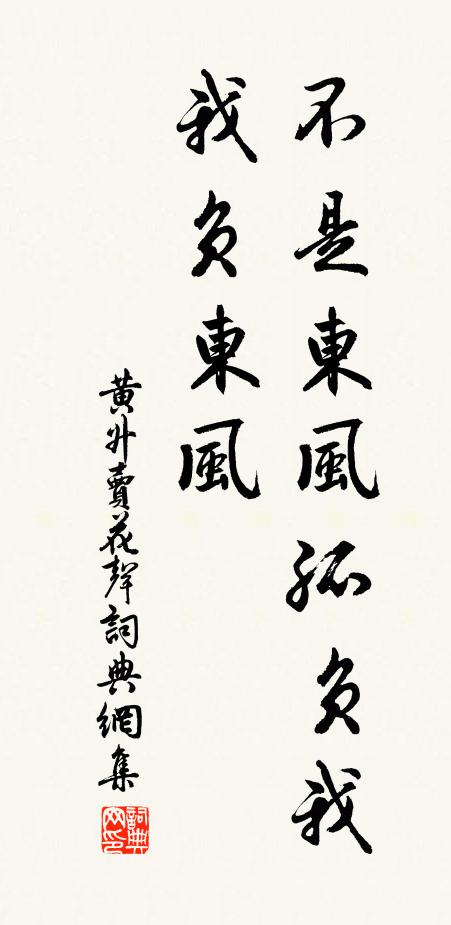 不是東風孤負我
我負東風
黃升賣花聲詞典網集
詞典
网印